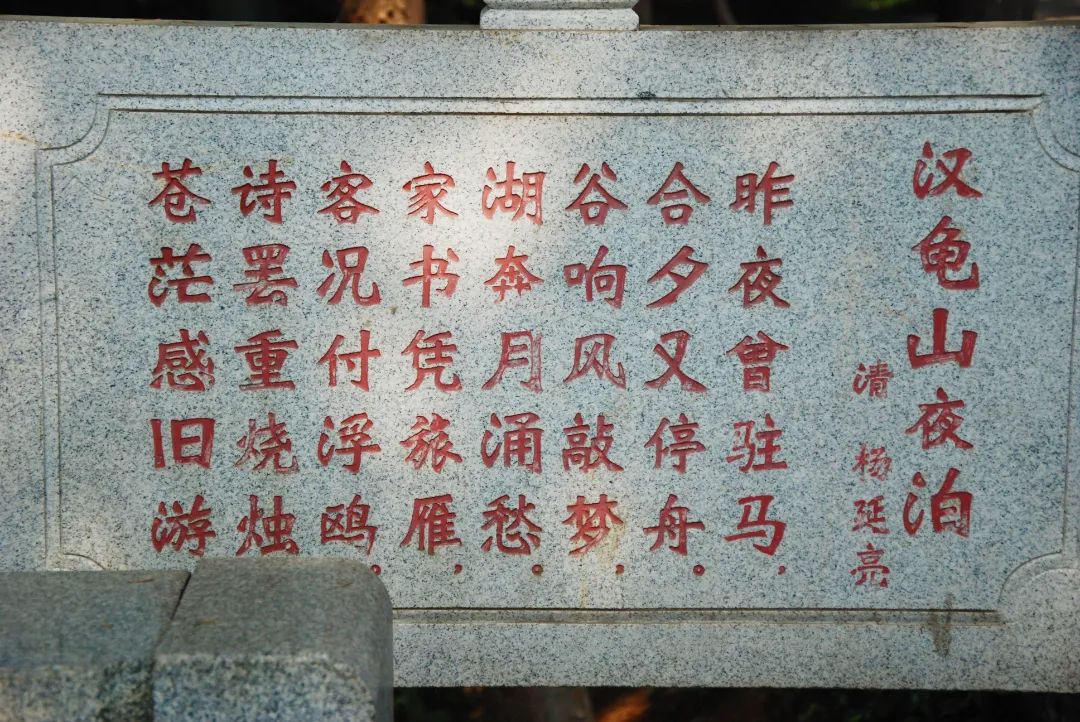 汉龟山夜泊
清 杨延亮
昨夜曾驻马，
合夕又停舟。
谷响风敲梦，
湖奔月涌愁。
家书凭旅雁，
客况付浮鸥。
诗罢重烧烛
苍茫感旧游